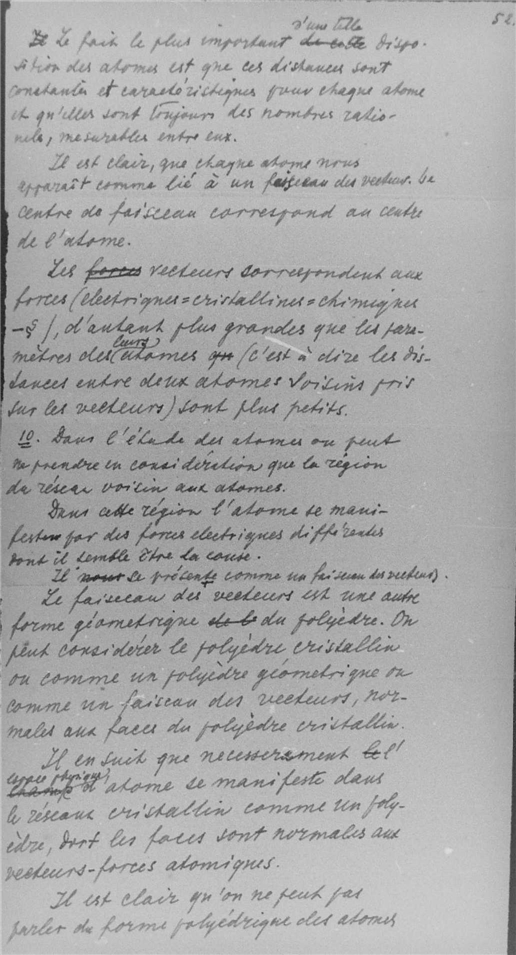 52.
d'une telle
Le fait le plus important de cette dispo-
sition des atomes est que ces distances sont
constantes et caractéristiques pour chaque atome
et qu'elles sont toujours des nombres ratio-
nels, mesurables entre eux.
Il est clair, que chaque atome nous
apparaît comme lié à un faisceau des vecteurs. Le
centre de faisceau correspond au centre
de l'atome.
Les forces vecteurs correspondent aux
forces (electriques = cristallines = chimiques
– § ), d'autant plus grandes que les para-
leurs
mètres des atomes (c'est à dire les dis-
tances entre deux atomes voisins pris
sur les vecteurs) sont plus petits.
10. Dans l'étude des atomes on peut
ne prendre en considération que la région
du réseau voisin aux atomes.
Dans cette région l'atome se mani-
feste par des forces electriques différentes
dont il semble être la cause.
Il nous se présente comme un faisceau des vecteurs.
Le faisceau des vecteurs est une autre
forme géometrique de le du polyèdre. On
peut considérer le polyèdre cristallin
ou comme un polyèdre géometrique ou
comme un faiseau des vecteurs, nor-
males aux faces du polyèdre cristallin.
Il en suit que necesserement le l'
espace physique
champ d'atome se manifeste dans
le réseaux cristallin comme un poly-
èdre, dont les faces sont normales aux
vecteurs-forces atomiques.
Il est clair qu'on ne peut pas
parler du forme polyédrique des atomes